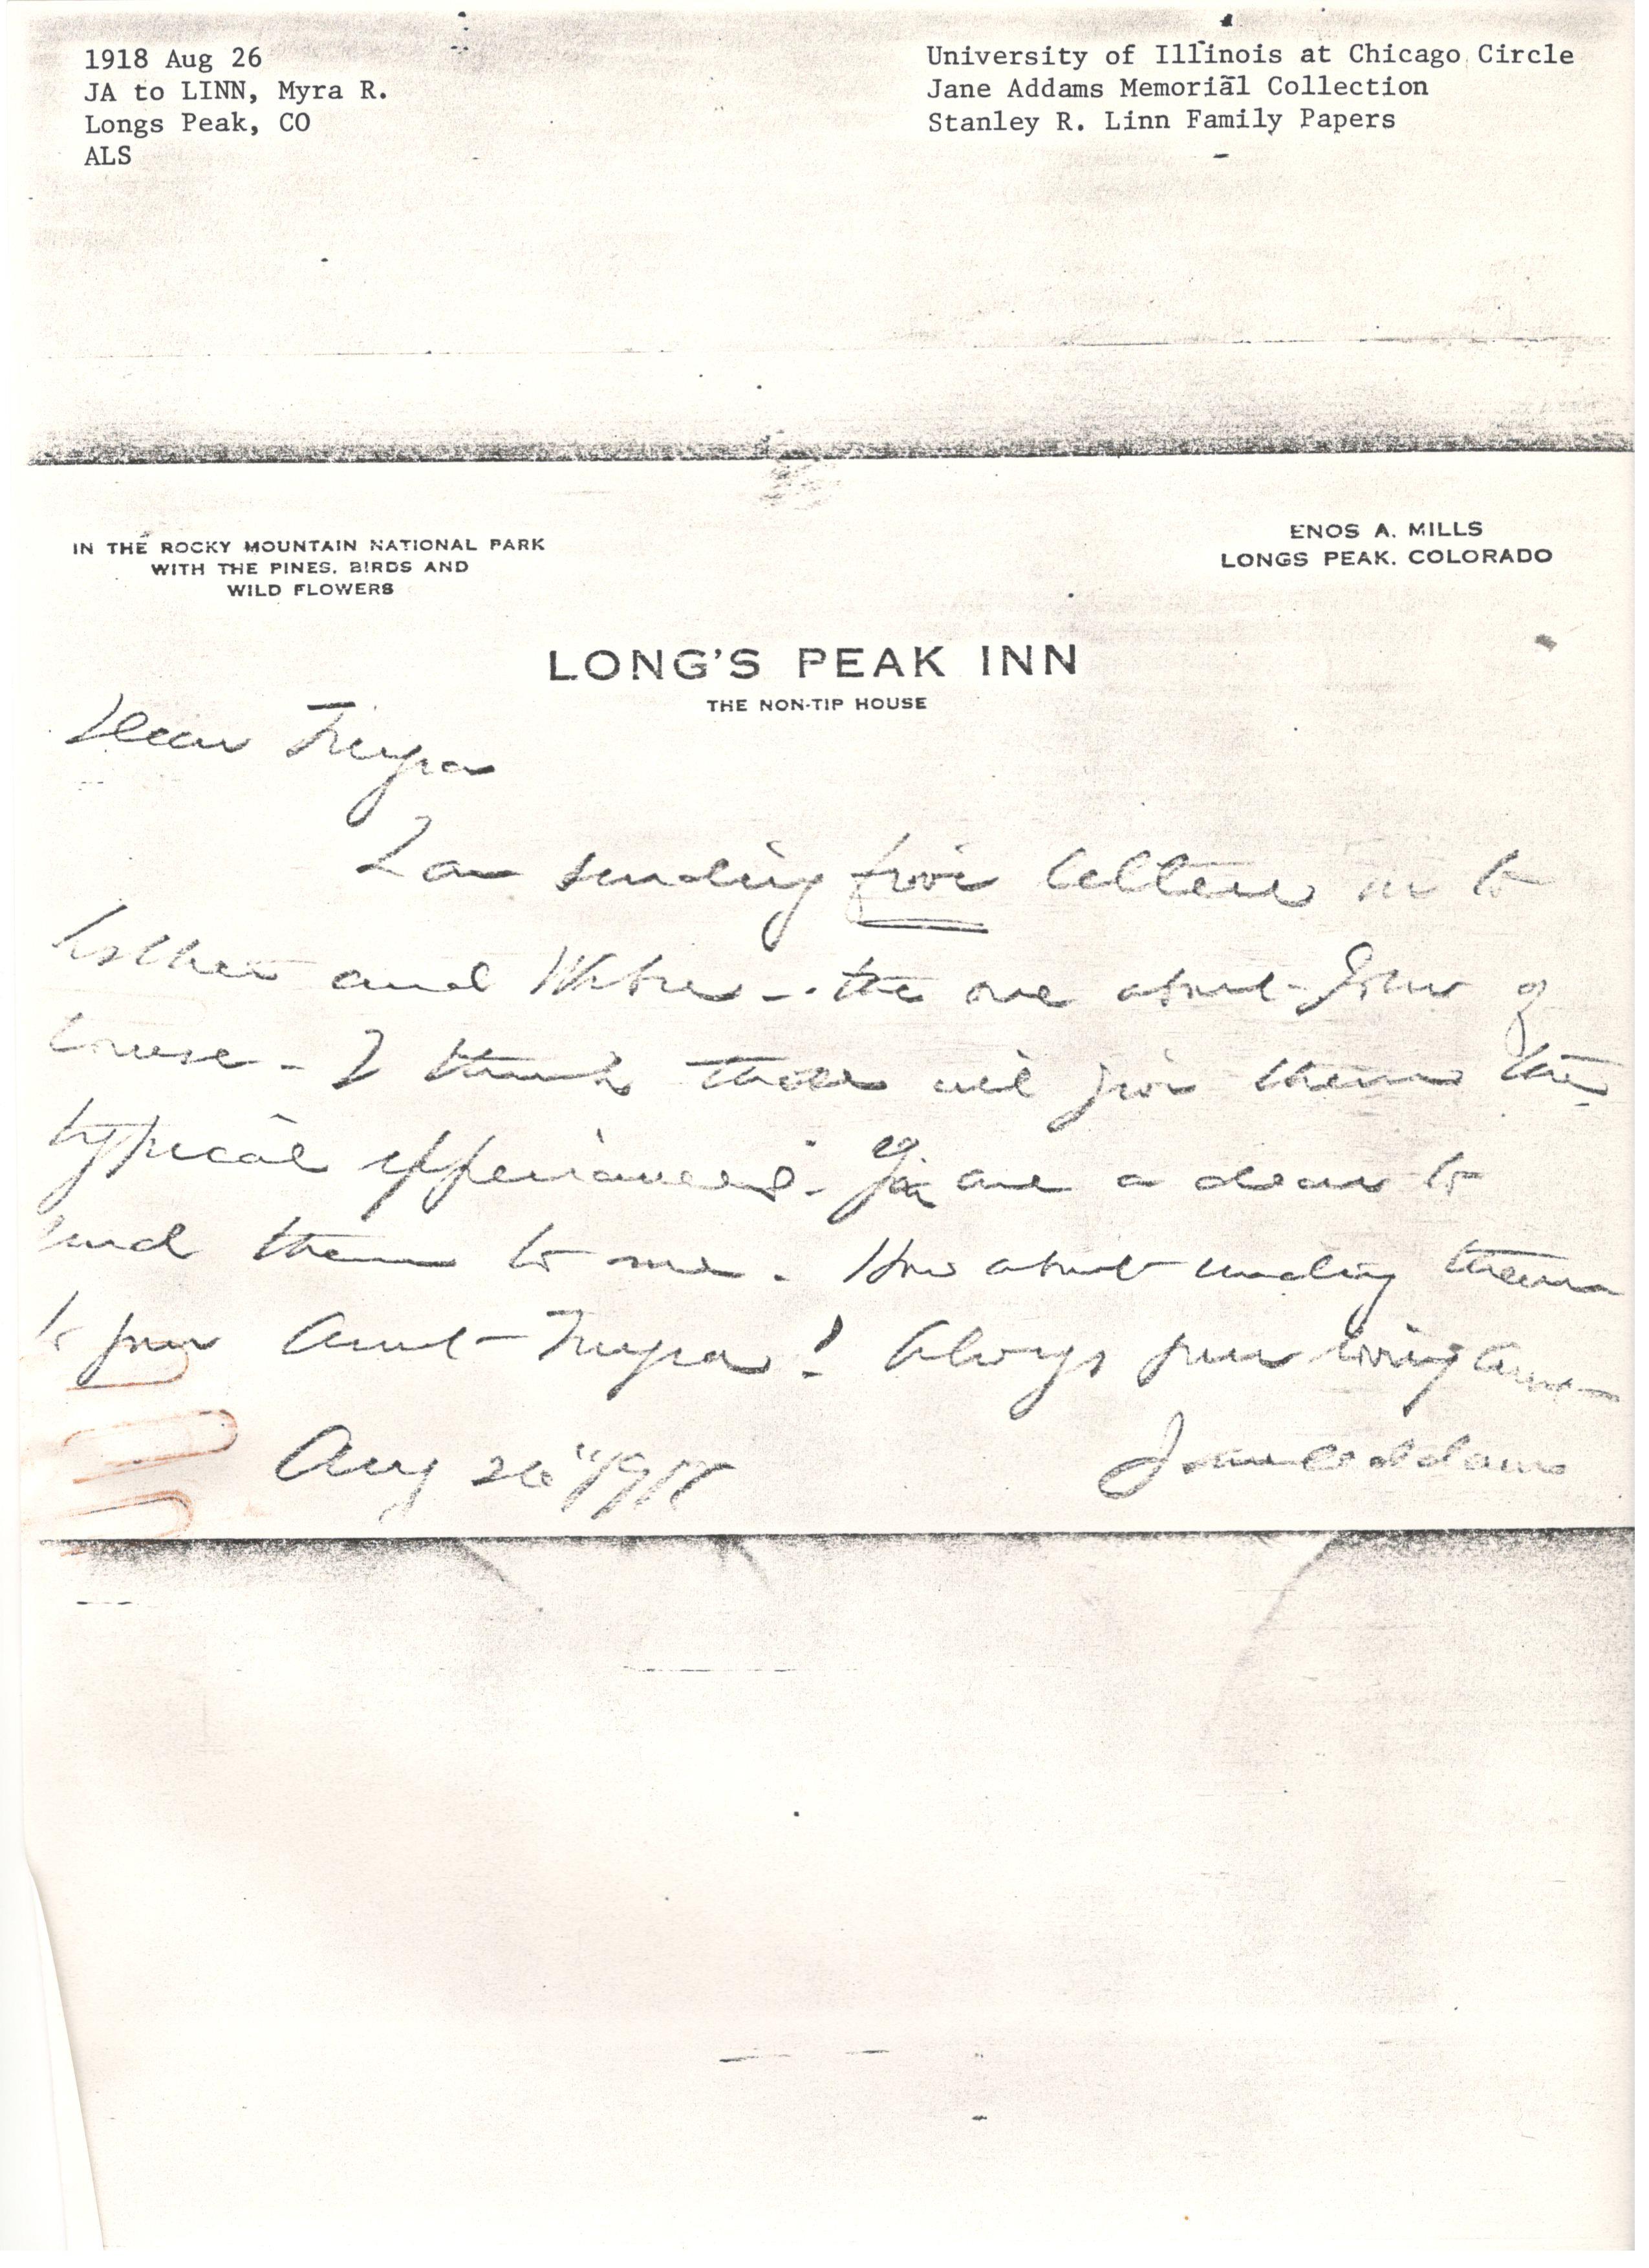 1918 Aug 26
JA to LINN, Myra R.
Longs Peak, CO
ALS
University of Illinois at Chicago Circle
Jane Addams Memorial Collection
Stanley R. Linn Family Papers
IN THE ROCKY MOUNTAIN NATIONAL PARK
WITH THE PINES, BIRDS AND
WILD FLOWERS
ENOS A. MILLS
LONGS PEAK, COLORADO
LONG'S PEAK INN
THE NON-TIP HOUSE
Dear Myra
I am sending five letters on to
Esther and Weber - the one about John of
course - I think those will give them the
typical experiences. You are a dear to
send them to me. How about sending them
to your Aunt Myra! Always your loving Aunt
Aug 26" 1918 Jane Addams